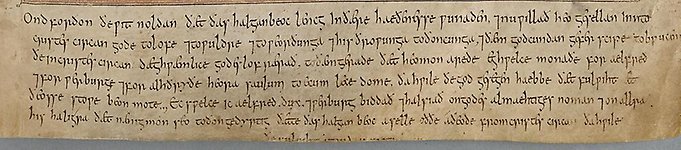 Ond forðon ðe ƿit noldan ðæt ðas halgan beoc lencg in ðære haeðenesse ƿunaden, ⁊ nu ƿillað heo gesellan inn to
cristes circan gode to lofe ⁊ to ƿuldre ⁊ to ƿeorðunga ⁊ his ðroƿunga to ðoncunga, ⁊ ðæm godcundan geferscipe to brucenne
ðe in cristes circan dæghƿæmlice godes lof rærað, to ðæm gerade ðæt heo mon arede eghƿelce monaðe for aelfred
⁊ for ƿerburge ⁊ for alhðryðe heora saulum to ecum lecedome, ða hƿile ðe god gesegen haebbe ðæt fulƿiht æt
ðeosse stoƿe beon mote. Ec sƿelce ic aelfred dux ⁊ ƿerburg biddað ⁊ halsiað on godes almaehtiges noman ⁊ on allra
his haligra ðæt nænig mon seo to ðon gedyrstig ðætte ðas halgan beoc aselle oððe aðeode from cristes circan ða hƿile